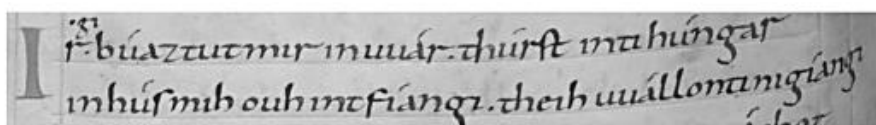 gi
Ir. búaztut mir in uuár. thúrst inti húngar
in hús mih ouh intfiangi. theih uuállonti ni giángi